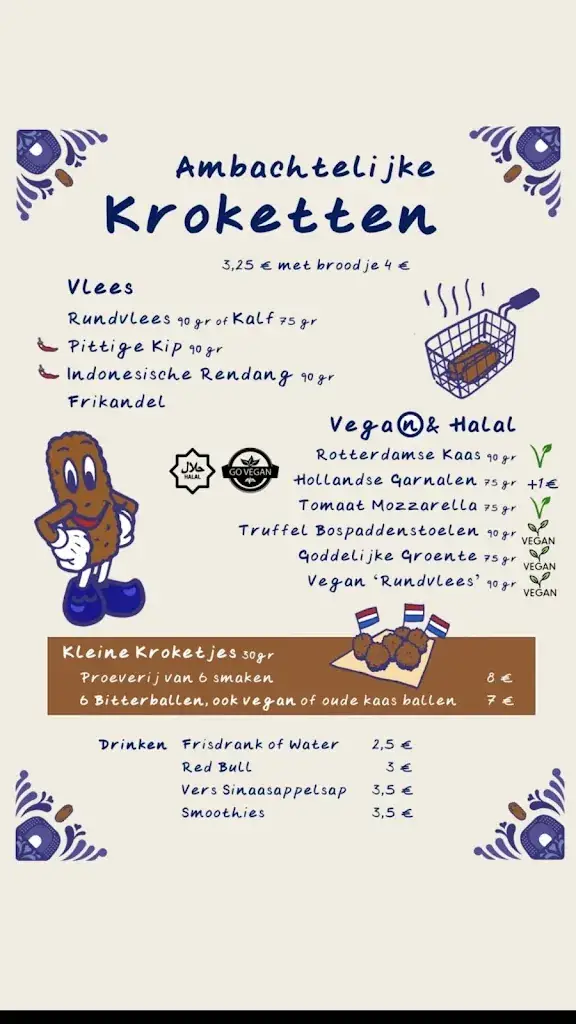 Ambachtelijke
Kroketten
3,25 € met broodje 4 €
Vlees
Rundvlees 90 gr of Kalf 75 gr
Pittige Kip 90 gr
Indonesische Rendang 90 gr
Frikandel
Vegan & Halal
Rotterdamse Kaas 90 gr
حلال
HALAL
GO VEGAN
Hollandse Garnalen 75 gr +1 €
Tomaat Mozzarella 75 gr
Truffel Bospaddenstoelen 90 gr VEGAN
Goddelijke Groente 75 gr VEGAN
Vegan ‘Rundvlees’ 90 gr VEGAN
Kleine Kroketjes 30gr
Proeverij van 6 smaken 8 €
6 Bitterballen, ook vegan of oude kaas ballen 7 €
Drinken Frisdrank of Water 2,5 €
Red Bull 3 €
Vers Sinaasappelsap 3,5 €
Smoothies 3,5 €